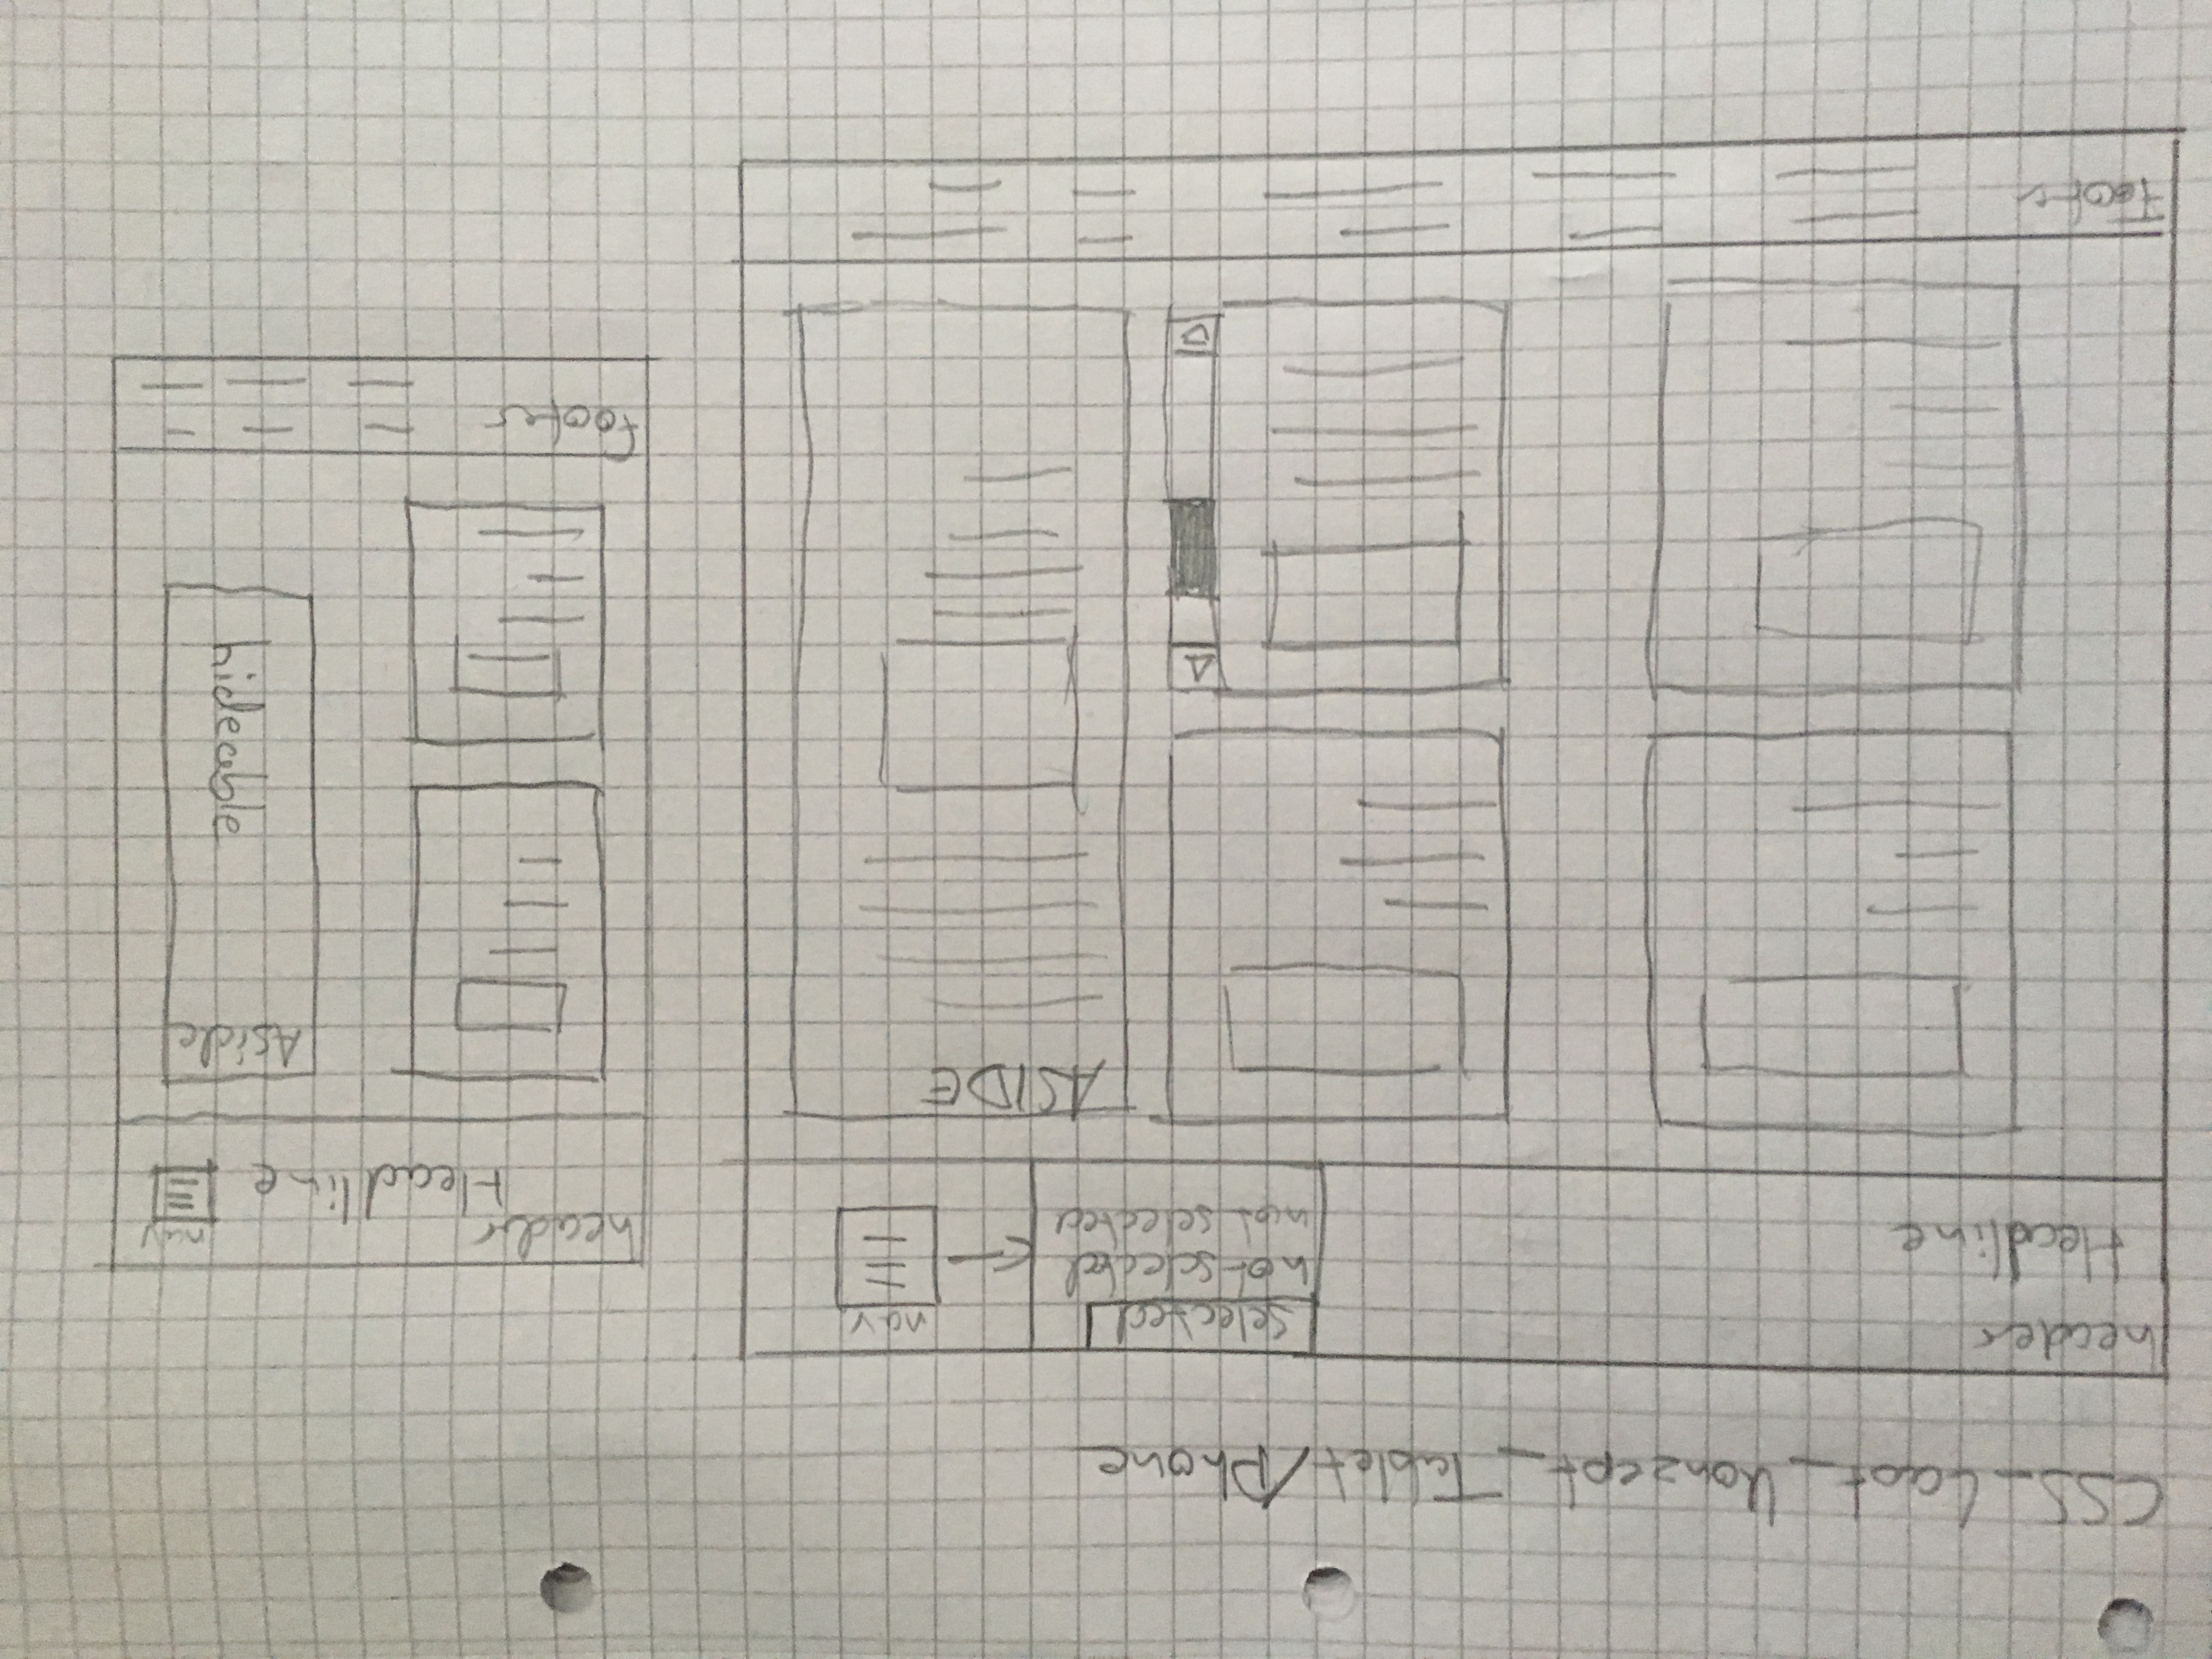 CSS_Laot_Konzept_Tablet/Phone
header
Headline
selected
not selected
not selected
nav
ASIDE
Footer
header
nav
Headline
Aside
hideable
footer